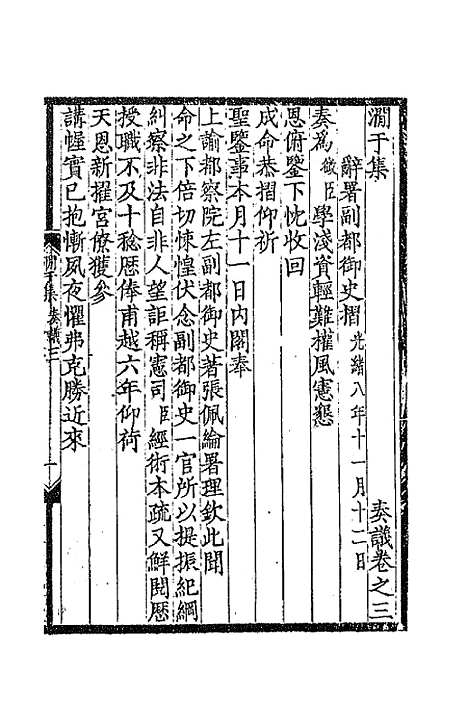 澗于集　奏議卷之三
辭署副都御史摺光緒八年十一月十二日
奏爲微臣學淺資輕難權風憲懇
恩俯鑒下忱收回
成命恭摺仰祈
聖鑒事本月十一日内閣奉
上諭都察院左副都御史著張佩綸署理欽此聞
命之下倍切悚惶伏念副都御史一官所以提振紀綱
糾察非法自非人望詎稱憲司臣經術本疏又鮮閱歷
授職不及十稔歷俸甫越六年仰荷
天恩新擢宮僚獲參
講幄實已抱慚夙夜懼弗克勝近來
澗于集　奏議三　一